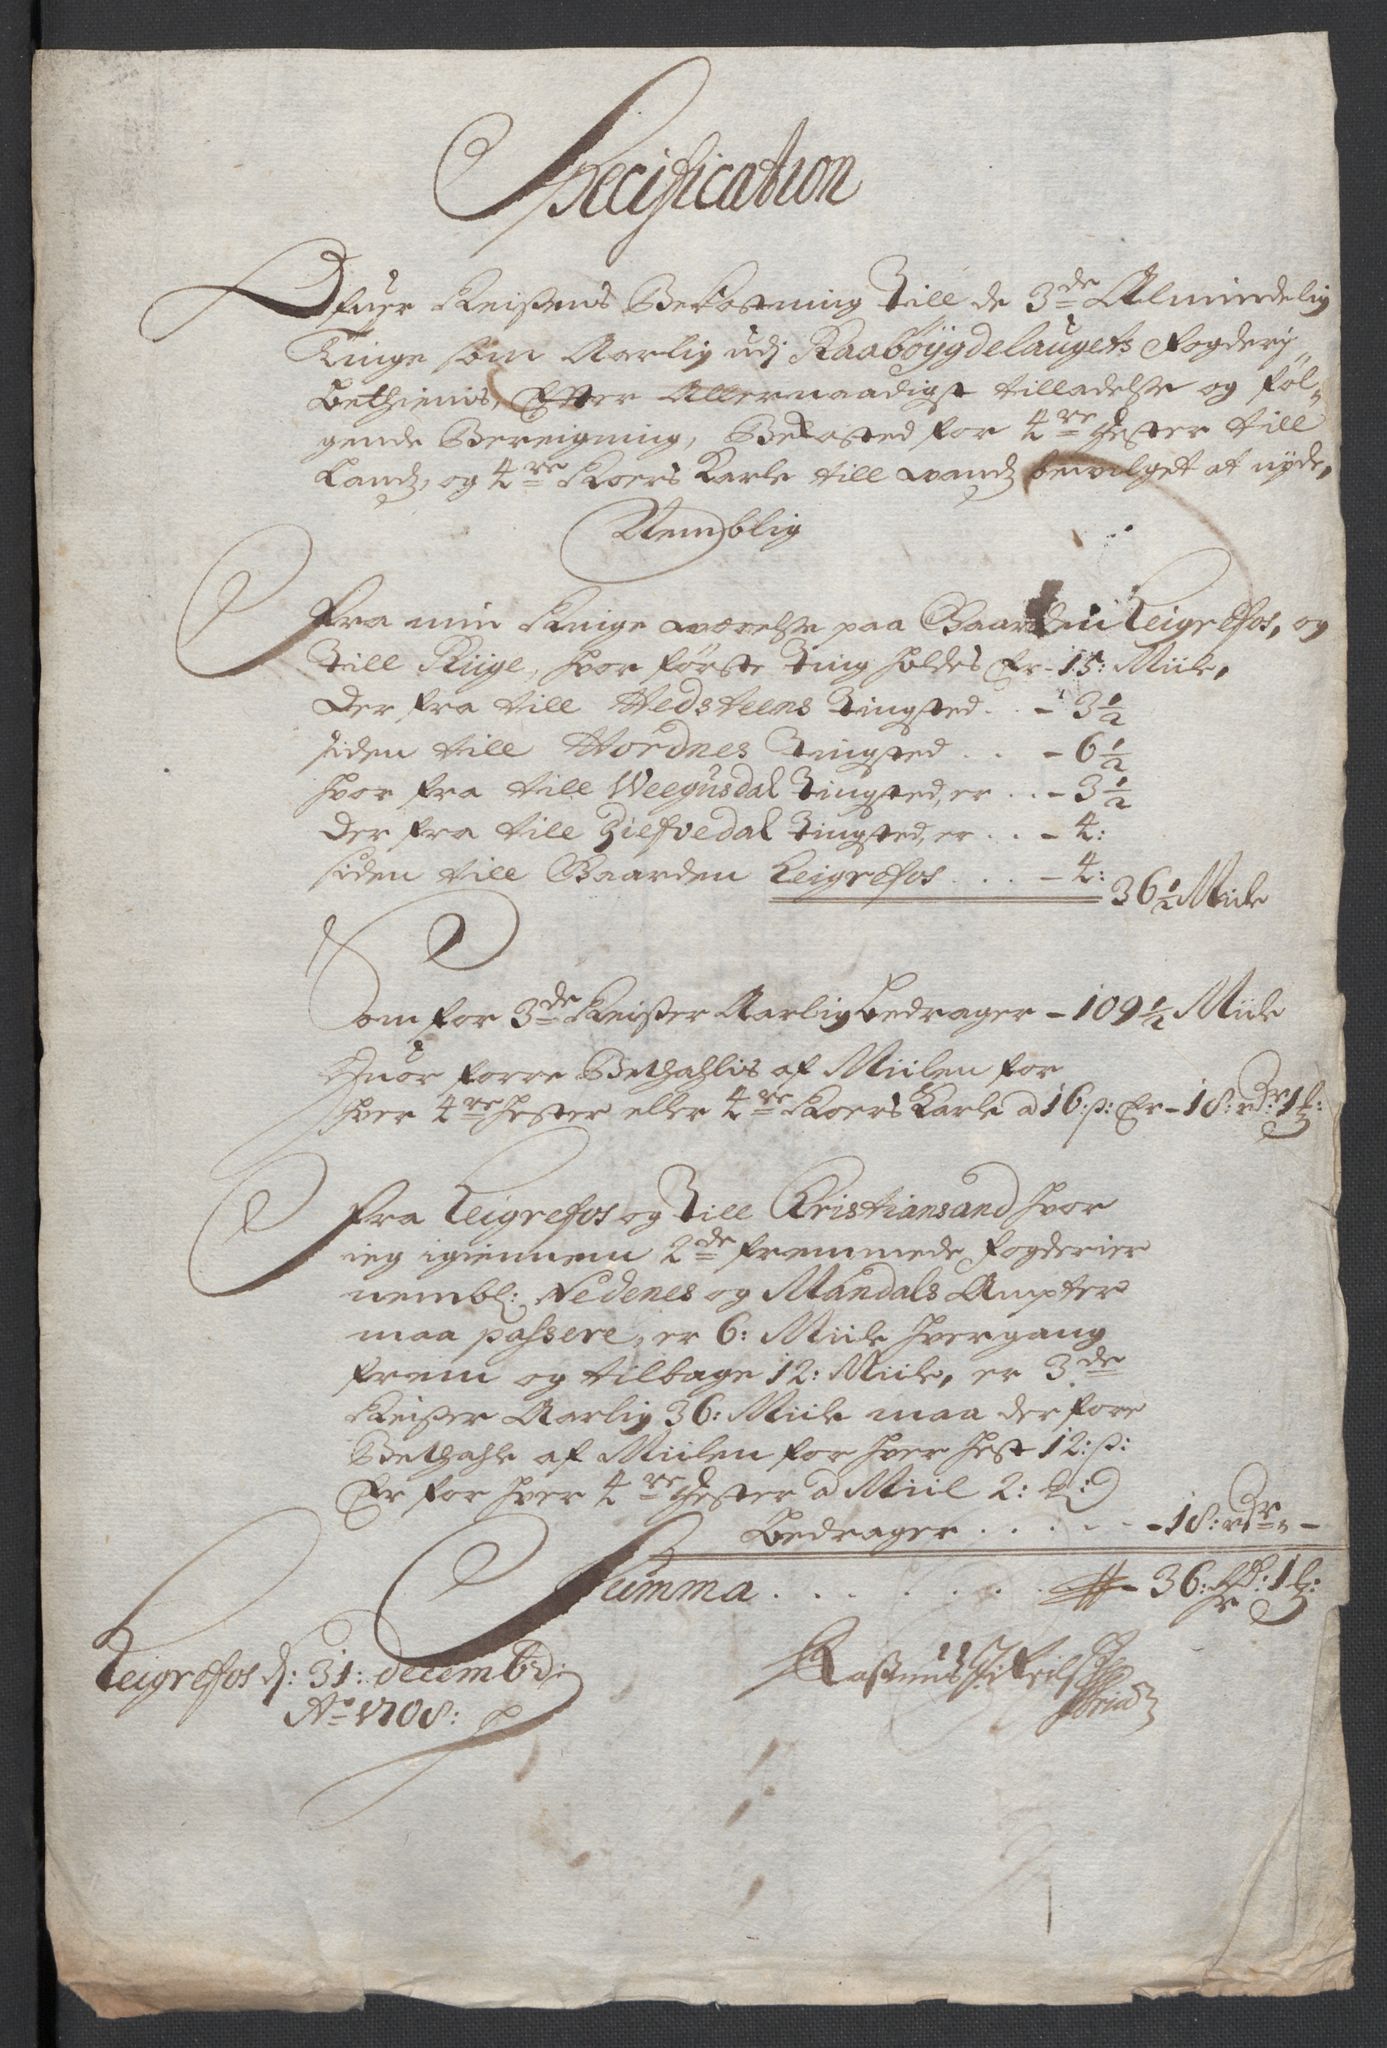 Specification
Ofuer Reisens Bekostning Till de 3de Almindelig
Tinge som Aarlig udj Raabøygdelaugets Fogderj
bethienis, Efter Allernaadigst tilladelse og føl-
gende Beregning, Bekosted for 4re Hester till
Landz, og 4re Roers Karle till vandz bevilget at nyde,
Nemblig
Fra min Ringe værelse paa Gaarden Leigrefos, og
Till Riige, hvor første Ting holdes Er - 15: Miile,
der fra till Hedsteens Tingsted . . - 3½
siden till Hordnes Tingsted . . - 6½
hvor fra till Weegusdal Tingsted, er . . - 3½
der fra till Ziefvedal Tingsted, er . . - 4:
siden till Gaarden Leigrefos . . . - 4:
36½ Miile
Som for 3de Reiser Aarlig bedrager - 109½ Miile
Huor forre Bethahlis af Miilen for
hver 4re Hester eller 4re Roers Karle a 16: s: Er - 18: rdr 1
Fra Leigrefos og Till Kristiansand hvor
ieg igiennem 2de fremmede fogderier
nembl: Nedenes og Mandals Ampter
maa passere, er 6: Miile hvergang
frem og tilbage 12: Miile, er 3de
Reiser Aarlig 36: Miile maa der fore
Bethahle af Miilen for hver Hest 12: s:
Er for hver 4re Hester a Miil 2:
bedrager . . . . . - 18: rdr -
Summa . . . . . . - 36: Rdr: 1
Leigrefos d: 31: decembd:
Ao 1708: